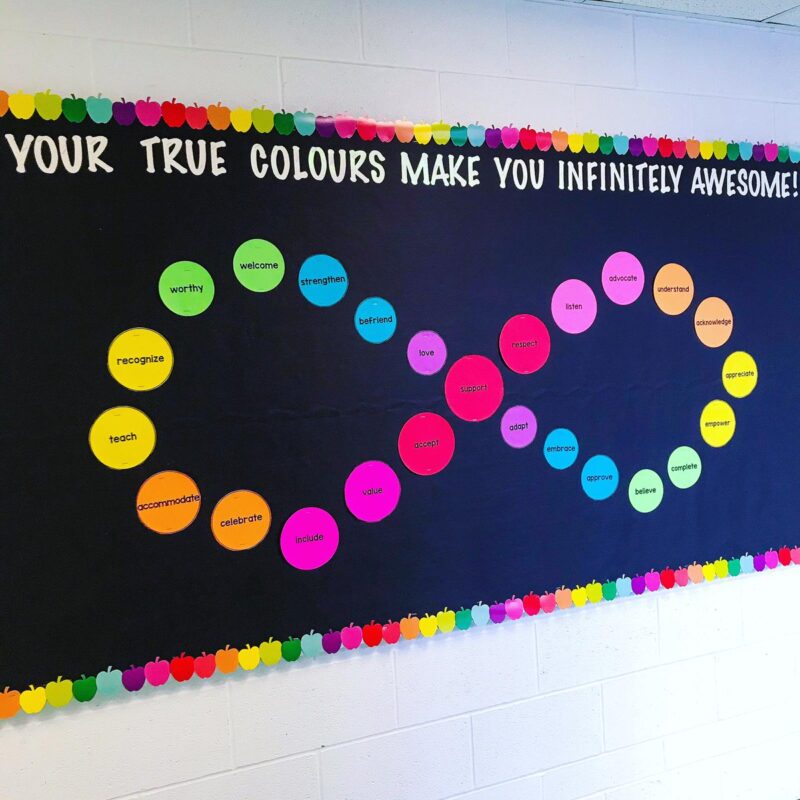 YOUR TRUE COLOURS MAKE YOU INFINITELY AWESOME!
worthy
welcome
strengthen
befriend
love
support
adapt
embrace
approve
believe
complete
empower
appreciate
acknowledge
understand
advocate
listen
respect
accept
value
include
celebrate
accommodate
teach
recognize